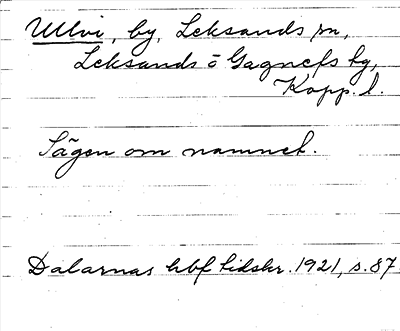 Ullvi, by, Leksands sn,
Leksands o Gagnefs tg,
Kopp. l.
Sägen om namnet.
Dalarnas hbf tidskr. 1921, s. 87